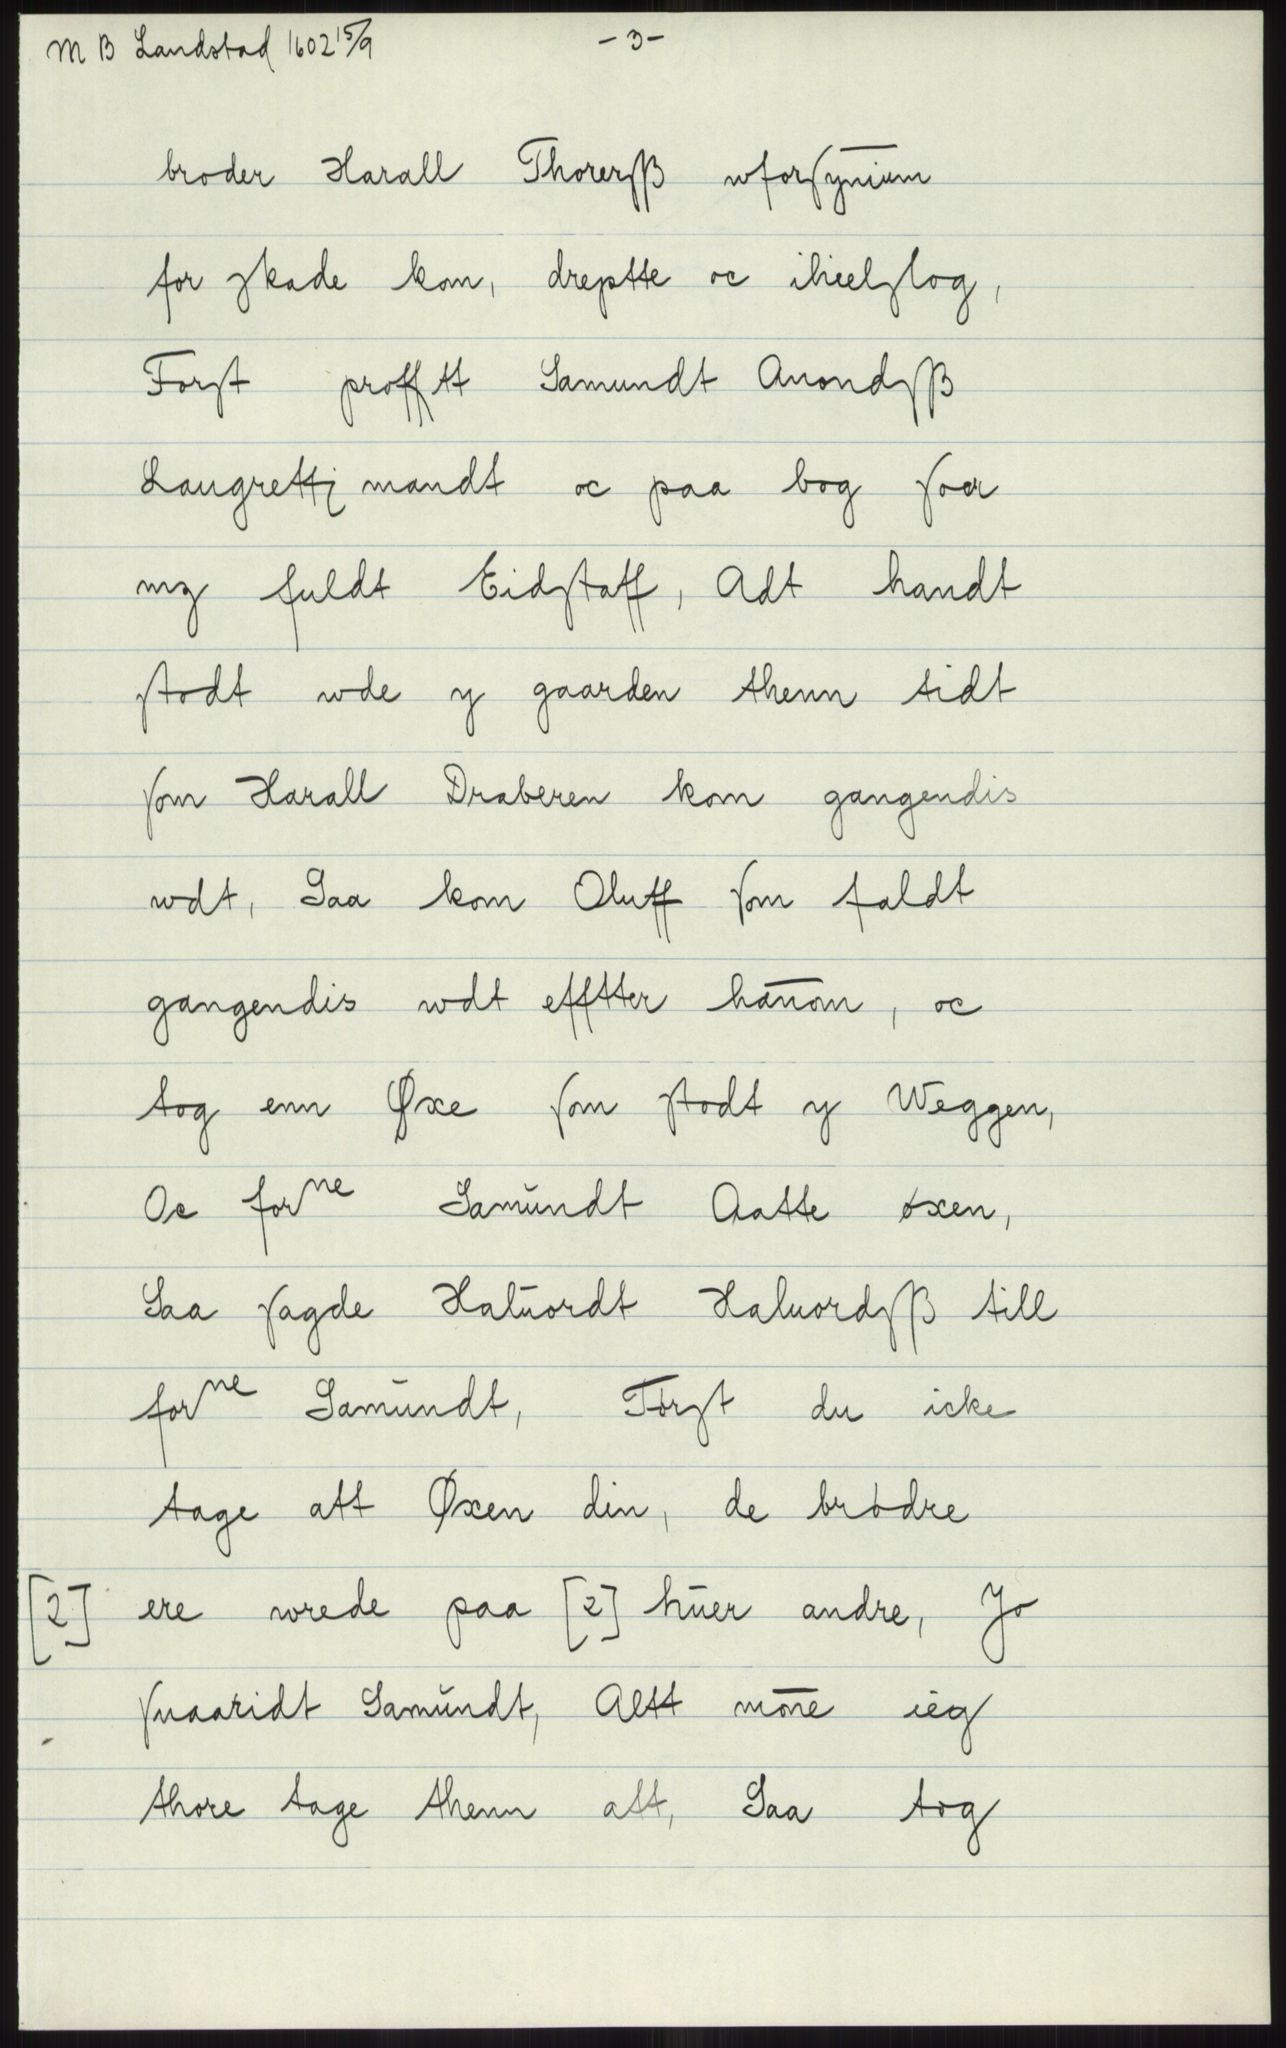 M B Landstad 1602 15/9 - 3 -
broder Harall Thorersß wforsynium
for skade kom, dreptte oc ihielslog,
Forst proffstt Samundt Anondsß
Laugrettj mandt oc paa bog soer
mz fuldt Eidstaff, Adt handt
stodt wde y gaarden thenn tidt
som Harall Draberen kom gangendis
wdt, Saa kom Oluff som faldt
gangendis wdt efftter han̄om, oc
tog enn Øxe som stodt y Weggen,
Oc forne Samŭndt Aatte øxen,
Saa sagde Halŭordt Haluordsß till
forne Samŭndt, Tørst du icke
tage att Øxen din, de brødre
[2] ere wrede paa [2] hŭer andre, Jo
suaaridt Samŭndt, Altt mōne ieg
thore tage thenn att, Saa tog